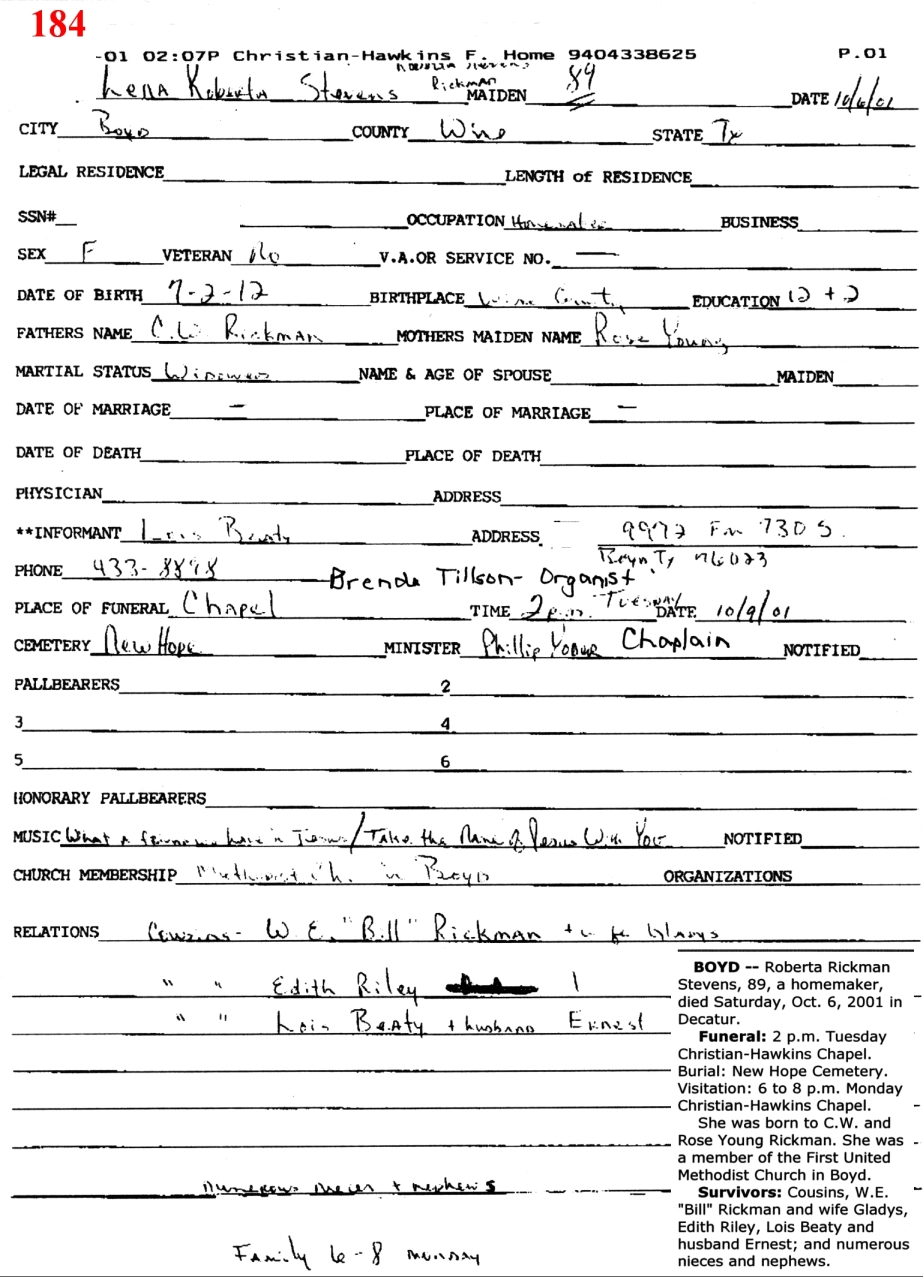 184
-01 02:07P Christian-Hawkins F. Home 9404338625 P.01
Roberta Stevens
Lena Roberta Stevens Rickman MAIDEN 89 DATE 10/6/01
CITY Boyd COUNTY Wise STATE Tx
LEGAL RESIDENCE LENGTH of RESIDENCE
SSN# OCCUPATION Homemaker BUSINESS
SEX F VETERAN No V.A.OR SERVICE NO. —
DATE OF BIRTH 7-2-12 BIRTHPLACE Wise County EDUCATION 12 + 2
FATHERS NAME C.W. Rickman MOTHERS MAIDEN NAME Rose Young
MARTIAL STATUS Widowed NAME & AGE OF SPOUSE MAIDEN
DATE OF MARRIAGE — PLACE OF MARRIAGE —
DATE OF DEATH PLACE OF DEATH
PHYSICIAN ADDRESS
**INFORMANT Lois Beaty ADDRESS 9972 Fm 730 S.
Boyd Tx 76023
PHONE 433-8898 Brenda Tillson- Organist
PLACE OF FUNERAL Chapel TIME 2 p.m. Tuesday DATE 10/9/01
CEMETERY New Hope MINISTER Phillip Chaplain NOTIFIED
PALLBEARERS 2
3 4
5 6
HONORARY PALLBEARERS
MUSIC What a friend we have in Jesus/Take the Name of Jesus With You NOTIFIED
CHURCH MEMBERSHIP Methodist Ch. in Boyd ORGANIZATIONS
RELATIONS Cousins- W.E. "Bill" Rickman + wife Gladys
" " Edith Riley
" " Lois Beaty + husband Ernest
numerous nieces + nephews
Family 6-8 monday
BOYD -- Roberta Rickman
Stevens, 89, a homemaker,
died Saturday, Oct. 6, 2001 in
Decatur.
Funeral: 2 p.m. Tuesday
Christian-Hawkins Chapel.
Burial: New Hope Cemetery.
Visitation: 6 to 8 p.m. Monday
Christian-Hawkins Chapel.
She was born to C.W. and
Rose Young Rickman. She was
a member of the First United
Methodist Church in Boyd.
Survivors: Cousins, W.E.
"Bill" Rickman and wife Gladys,
Edith Riley, Lois Beaty and
husband Ernest; and numerous
nieces and nephews.